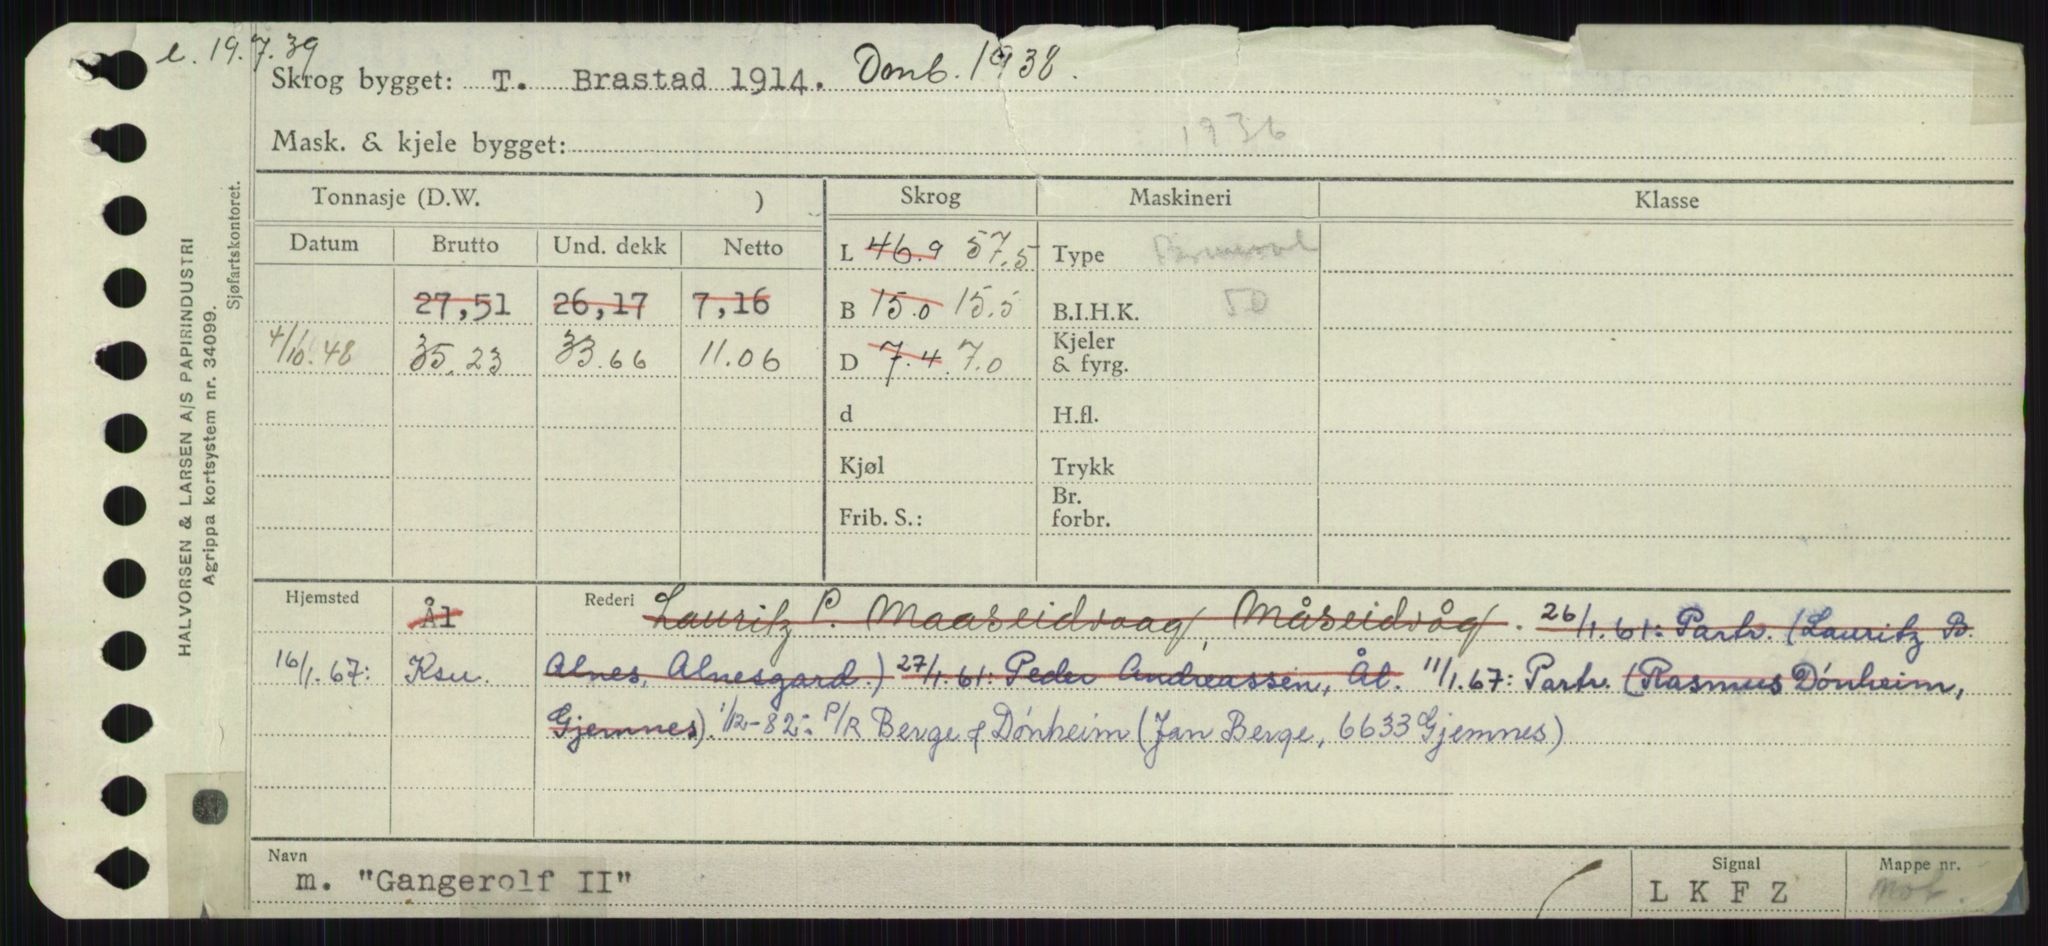 l. 19.7.39
Skrog bygget: T. Brastad 1914. Omb. 1938.
Mask. & kjele bygget: 1936
HALVORSEN & LARSEN A/S PAPIRINDUSTRI
Agrippa kortsystem nr. 34099.
Sjøfartskontoret.
Tonnasje (D.W. ) Skrog Maskineri Klasse
Datum Brutto Und. dekk Netto
L 46.9 57.5 Type
27,51 26,17 7,16 B 15.0 15.5 B.I.H.K. 50
4/10.48 35.23 33.66 11.06 D 7.4 7.0 Kjeler & fyrg.
d H.fl.
Kjøl Trykk
Frib. S.: Br. forbr.
Hjemsted Ål Rederi Lauritz P. Maaseidvaag, Måseidvåg. 26/1.61: Partr. (Lauritz B.
16/1.67: Ksu. Alnes, Alnesgard.) 27/1.61: Peder Andreassen, Ål. 11/1.67: Partr. (Rasmus Dónheim,
Gjemnes). 1/12-82: P/R Berge & Dónheim (Jan Berge, 6633 Gjemnes)
Navn Signal Mappe nr.
m. "Gangerolf II" L K F Z Mot.